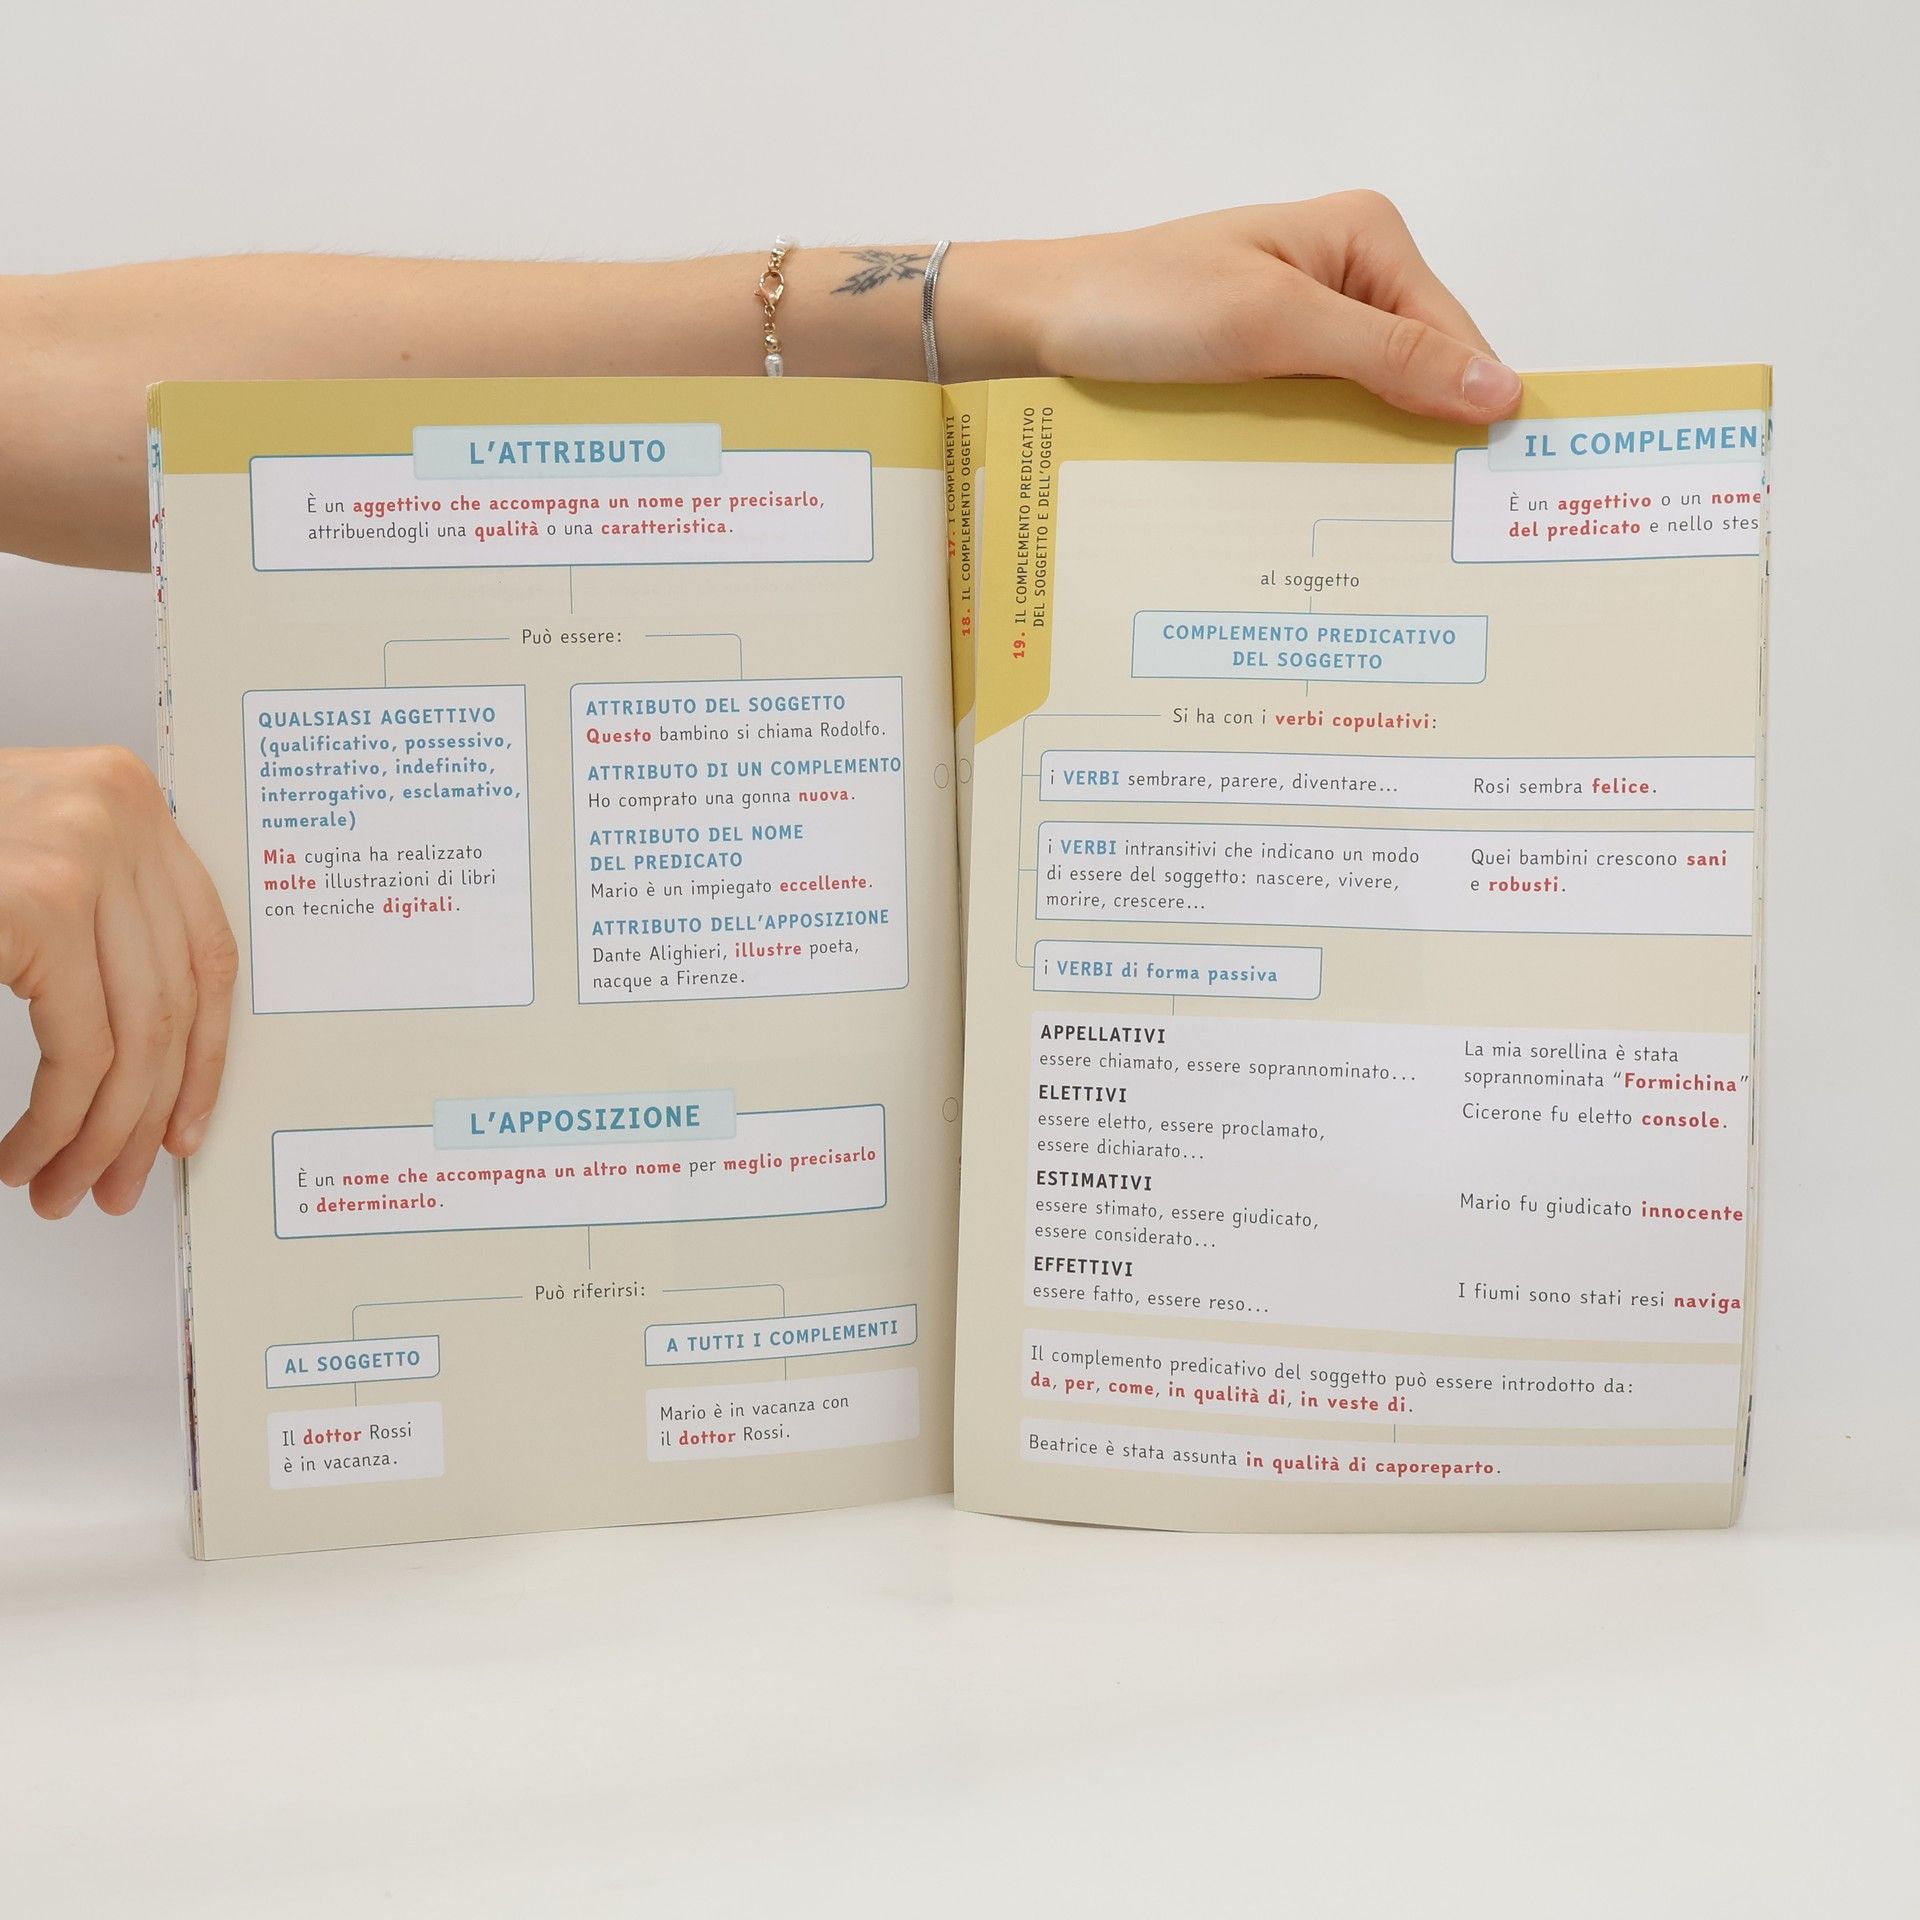 L'ATTRIBUTO
È un aggettivo che accompagna un nome per precisarlo,
attribuendogli una qualità o una caratteristica.
Può essere:
QUALSIASI AGGETTIVO
(qualificativo, possessivo,
dimostrativo, indefinito,
interrogativo, esclamativo,
numerale)
Mia cugina ha realizzato
molte illustrazioni di libri
con tecniche digitali.
ATTRIBUTO DEL SOGGETTO
Questo bambino si chiama Rodolfo.
ATTRIBUTO DI UN COMPLEMENTO
Ho comprato una gonna nuova.
ATTRIBUTO DEL NOME
DEL PREDICATO
Mario è un impiegato eccellente.
ATTRIBUTO DELL'APPOSIZIONE
Dante Alighieri, illustre poeta,
nacque a Firenze.
L'APPOSIZIONE
È un nome che accompagna un altro nome per meglio precisarlo
o determinarlo.
Può riferirsi:
AL SOGGETTO
Il dottor Rossi
è in vacanza.
A TUTTI I COMPLEMENTI
Mario è in vacanza con
il dottor Rossi.
17. I COMPLEMENTI
18. IL COMPLEMENTO OGGETTO
19. IL COMPLEMENTO PREDICATIVO
DEL SOGGETTO E DELL'OGGETTO
IL COMPLEMEN
È un aggettivo o un nome
del predicato e nello stes
al soggetto
COMPLEMENTO PREDICATIVO
DEL SOGGETTO
Si ha con i verbi copulativi:
i VERBI sembrare, parere, diventare...
Rosi sembra felice.
i VERBI intransitivi che indicano un modo
di essere del soggetto: nascere, vivere,
morire, crescere...
Quei bambini crescono sani
e robusti.
i VERBI di forma passiva
APPELLATIVI
essere chiamato, essere soprannominato...
La mia sorellina è stata
soprannominata “Formichina”
ELETTIVI
essere eletto, essere proclamato,
essere dichiarato...
Cicerone fu eletto console.
ESTIMATIVI
essere stimato, essere giudicato,
essere considerato...
Mario fu giudicato innocente
EFFETTIVI
essere fatto, essere reso...
I fiumi sono stati resi naviga
Il complemento predicativo del soggetto può essere introdotto da:
da, per, come, in qualità di, in veste di.
Beatrice è stata assunta in qualità di caporeparto.